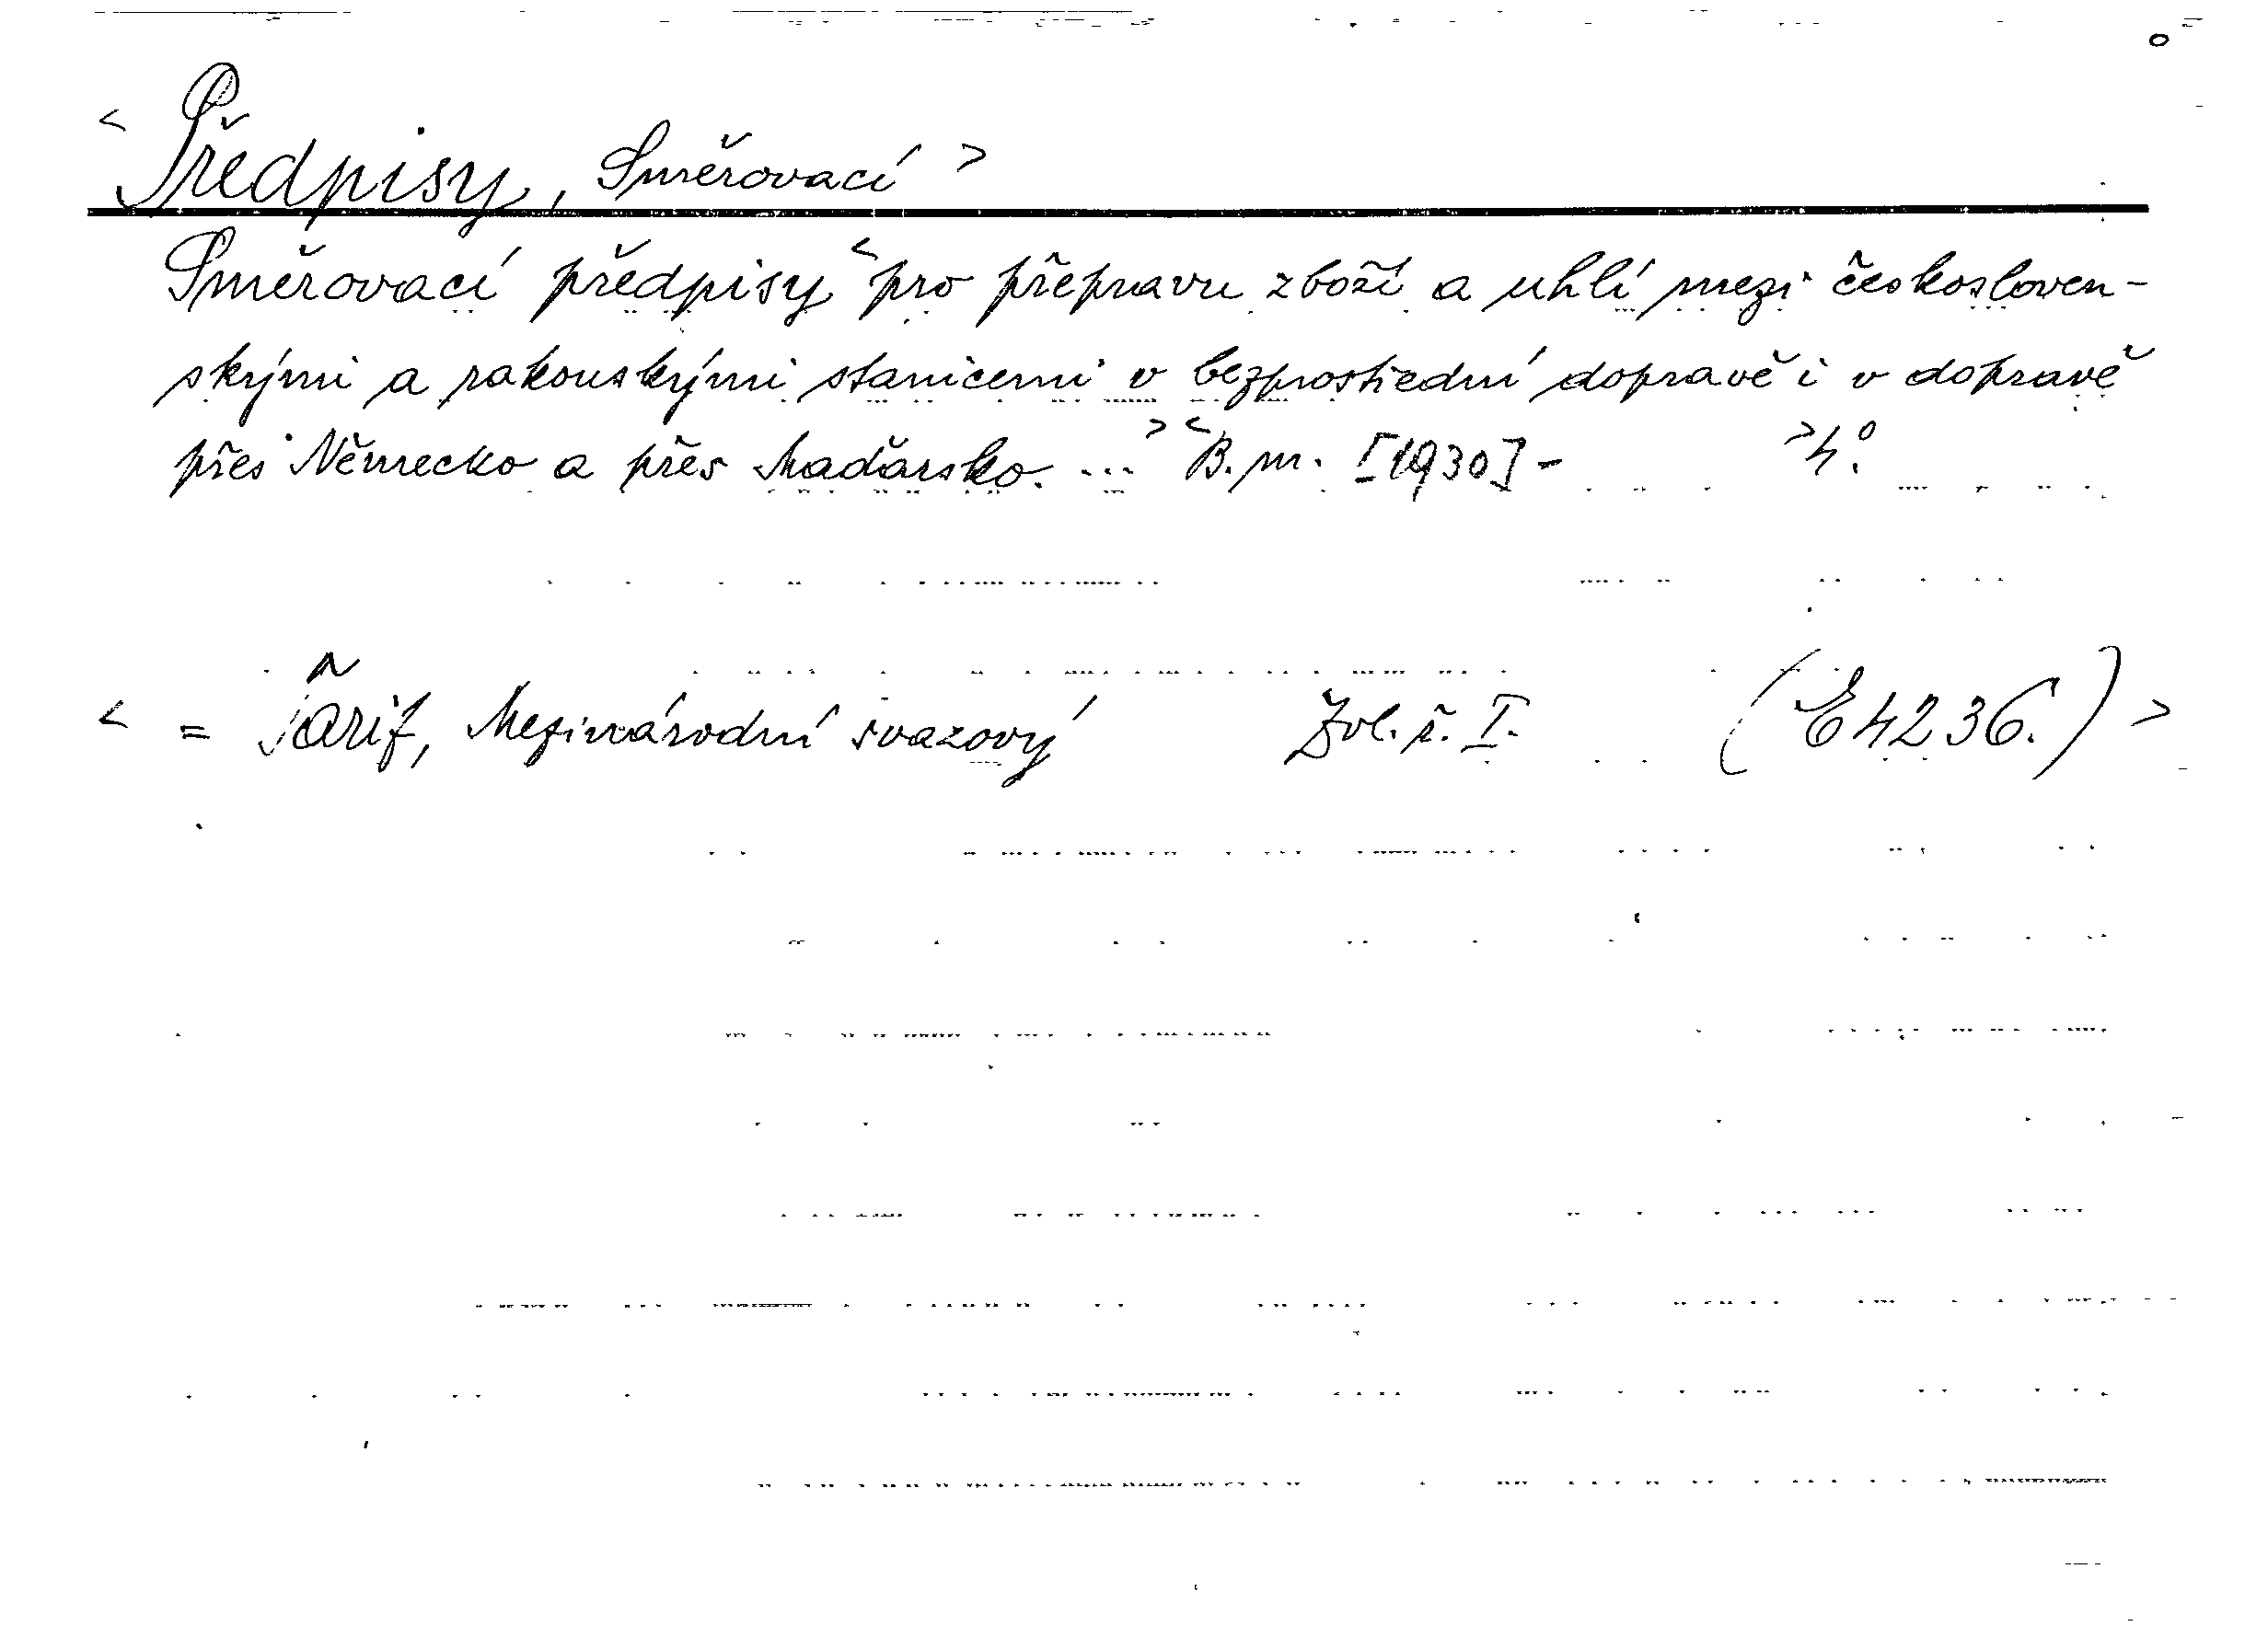 < Předpisy, Směrovací >
Směrovací předpisy < pro přepravu zboží a uhlí mezi českosloven-
skými a rakouskými stanicemi v bezprostřední dopravě i v dopravě
přes Německo a přes Maďarsko. ... > < B. m. [1930] - > 4°.
< = Tarif, Mezinárodní svazový Zvl. ř. I. (E 4236.) >